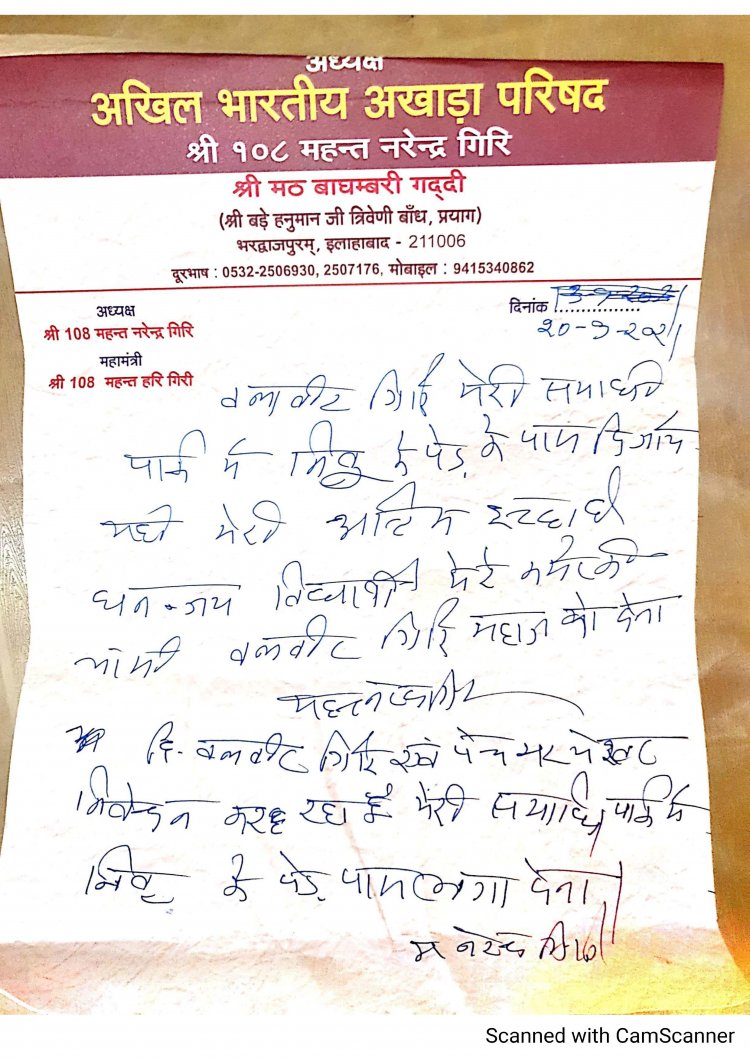 अध्यक्ष
अखिल भारतीय अखाड़ा परिषद
श्री १०८ महन्त नरेन्द्र गिरि
श्री मठ बाघम्बरी गद्दी
(श्री बड़े हनुमान जी त्रिवेणी बाँध, प्रयाग)
भरद्वाजपुरम्, इलाहाबाद - 211006
दूरभाष : 0532-2506930, 2507176, मोबाइल : 9415340862
अध्यक्ष
श्री 108 महन्त नरेन्द्र गिरि
महामंत्री
श्री 108 महन्त हरि गिरी
दिनांक 13-9-2021
२०-9-२०२१
बलवीर गिरि मेरी समाधी
पार्क में निबू के पेड़ के पास दि जाय
यही मेरी अंतिम इच्छा है
धनन्जय विद्यार्थी मेरे कमरे की
चाभी बलवीर गिरि महाराज को देना
बलवीर गिरि एवं पंच परमेश्वर
निवेदन कर रहा हूँ मेरी समाधि पार्क में
निबू के पेड़ पास लगा देना
म नरेन्द्र गिरि
Scanned with CamScanner